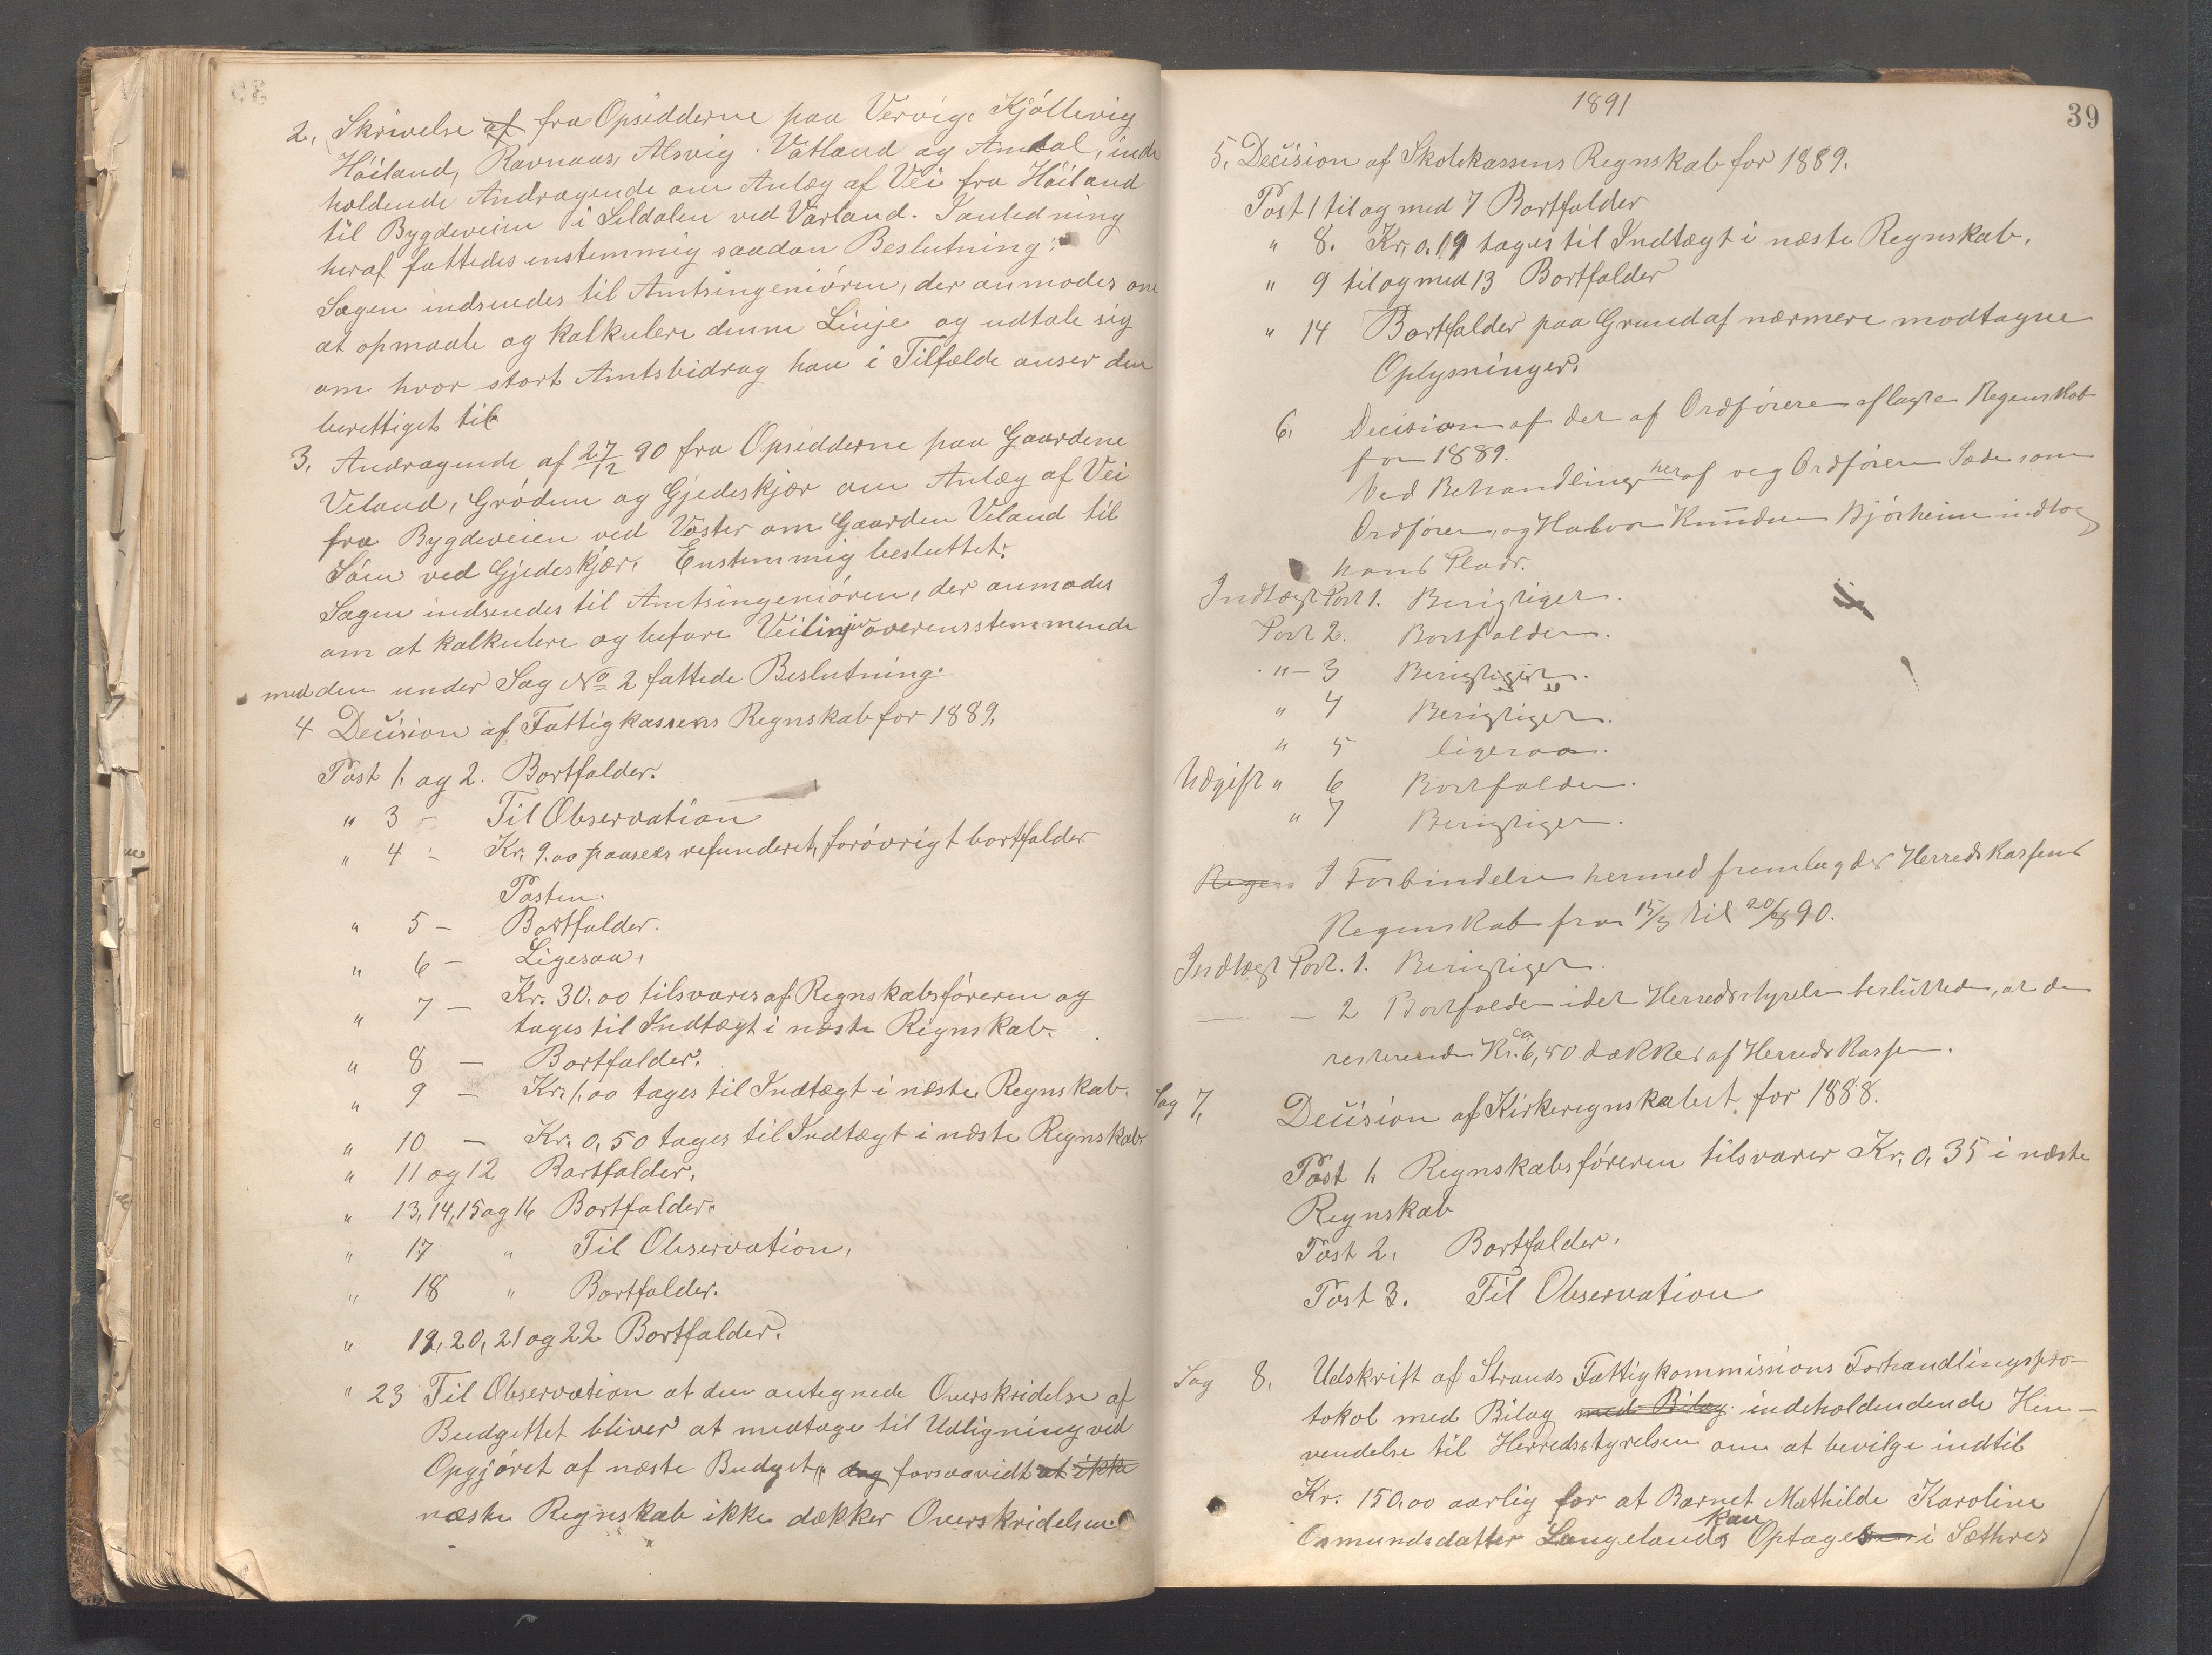 2, Skrivelse af fra Opsidderne paa Vervig, Kjöllevig
Höiland, Ravnaas, Alsvig. Vatland og Amdal, inde
holdende Andragende om Anlæg af Vei fra Höiland
til Bygdeveien i Lildalen ved Varland. I anledning
heraf fattedes enstemmig saadan Beslutning:
Sagen indsendes til Amtsingeniören, der anmodes om
at opmaale og kalkulere denne Linje og udtale sig
om hvor stort Amtsbidrag han i Tilfælde anser den
berettiget til
3, Andragende af 27/12 90 fra Opsidderne paa Gaardene
Veland, Gröden og Gjedeskjær om Anlæg af Vei
fra Bygdeveien ved Vaster om Gaarden Veland til
Söen ved Gjedeskjær. Enstemmig besluttet:
Sagen indsendes til Amtsingeniören, der anmodes
om at kalkulere og befare Veilinjen overensstemmende
med den under Sag No 2 fattede Beslutning.
4 Decision af Fattigkassens Regnskab for 1889,
Post 1, og 2. Bortfalder.
" 3 - Til Observation
" 4 - Kr. 9.00 paasees refunderet, forövrigt bortfalder
Posten.
" 5 - Bortfalder.
" 6 - Ligesaa,
" 7 - Kr. 30.00 tilsvares af Regnskabsföreren og
tages til Indtægt i næste Regnskab.
" 8 - Bortfalder.
" 9 - Kr. 1,00 tages til Indtægt i næste Regnskab.
" 10 - Kr. 0,50 tages til Indtægt i næste Regnskab
" 11 og 12 Bortfalder.
" 13, 14, 15 og 16 Bortfalder.
" 17 " Til Observation,
" 18 " Bortfalder.
" 19, 20, 21 og 22 Bortfalder.
" 23 Til Observation at den antegnede Overskridelse af
Budgettet bliver at medtage til Udligning ved
Opgjöret af næste Budget, dog forsaavidt at ikke
næste Regnskab ikke dækker Overskridelsen.
1891
39
5, Decision af Skolekassens Regnskab for 1889.
Post 1 til og med 7 Bortfalder
" 8. Kr. 0,19 tages til Indtægt i næste Regnskab.
" 9 til og med 13 Bortfalder
" 14 Bortfalder paa Grund af nærmere modtagne
Oplysninger.
6, Decision af det af Ordföreren aflagte Regenskab
for 1889.
Ved Behandlingen heraf veg Ordföreren Sæde som
Ordförer, og Halvor Knudsen Björheim indtog
hans Plads.
Indtægt Post 1. Berigtiget.
Post 2. Bortfalder.
" - 3 Berigtiget.
" 4 Berigtiget.
" 5 ligesaa.
Udgift " 6 Bortfalder.
" 7 Berigtiget.
Regens I Forbindelse hermed fremlagdes Herredskassens
Regenskab fra 15/3 til 20/8 90.
Indtægt Post. 1. Berigtiget.
— — 2 Bortfalder idet Herredsstyrelsen besluttede, at de
resterende Kr. ca 6,50 dækkes af Herredskassen.
Sag 7, Decision af Kirkeregnskabet for 1888.
Post 1, Regnskabsföreren tilsvarer Kr. 0,35 i næste
Regnskab
Post 2, Bortfalder.
Post 3. Til Observation
Sag 8, Udskrift af Strands Fattigkommissions Forhandlingspro-
tokol med Bilag med Bilag indeholdendende Hen-
vendelse til Herredsstyrelsen om at bevilge indtil
Kr. 150,00 aarlig for at Barnet Mathilde Karoline
Osmundsdatter Langelands kan Optages i Sæthres